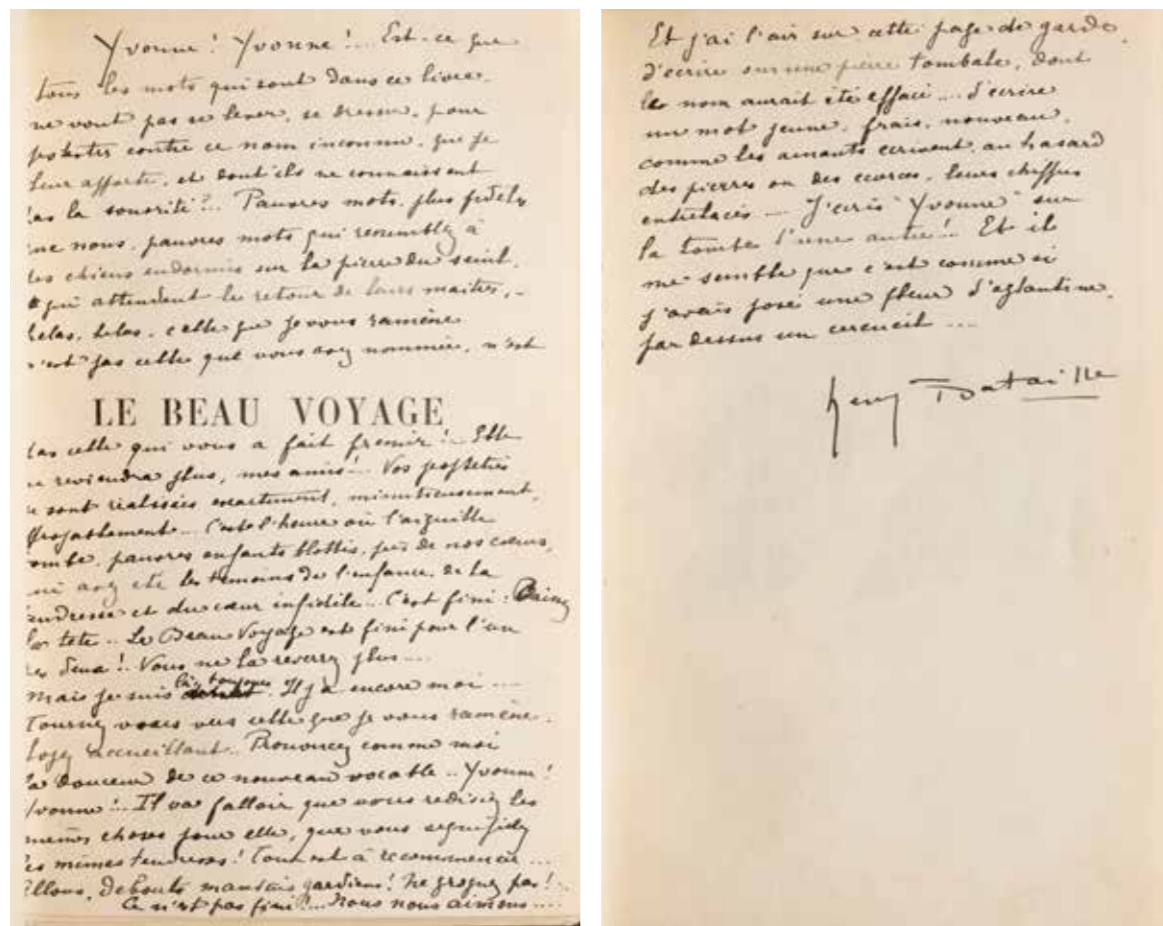 Yvonne ! Yvonne !... Est-ce que
tous les mots qui sont dans ce livre
ne vont pas se lever, se dresser, pour
protester contre ce nom inconnu, que je
leur apporte, et dont ils ne connaissent
pas la sonorité ?.. Pauvres mots, plus fidèles
que nous, pauvres mots qui ressemblez à
des chiens endormis sur la pierre du seuil,
qui attendent le retour de leurs maîtres, -
helas, helas, celle que je vous ramène
n'est pas celle que vous avez nommée, n'est
LE BEAU VOYAGE
pas celle qui vous a fait fremir !.. Elle
ne reviendra plus, mes amis !.. Vos prophéties
se sont réalisées exactement, minutieusement,
C'est l'heure où l'aiguille
tombe, pauvres enfants blottis, près de nos cœurs,
qui avez été les témoins de l'enfance, de la
tendresse et du cœur infidèle... C'est fini : Baissez
la tete .. Le Beau Voyage est fini pour l'un
des deux !. Vous ne la reverrez plus....
Mais je suis là toujours. Il y a encore moi ....
Tournez vous vers celle que je vous ramène.
Soyez accueillant.. Prononcez comme moi
la douceur de ce nouveau vocable .. Yvonne !
Yvonne !.. Il va falloir que vous redisiez les
mêmes choses pour elle, que vous
les mêmes tendresses ! Tout est à recommencer ....
Allons, Debouts mauvais gardiens ! Ne grognez pas !..
Ce n'est pas fini !... Nous nous aimons ....
Et j'ai l'air sur cette page de garde,
d'écrire sur une pierre tombale, dont
le nom aurait été effacé.... d'écrire
un mot jeune, frais, nouveau,
comme les amants écrivent, au hasard
des pierres ou des écorces, leurs chiffres
entrelacés ... J'écris "Yvonne" sur
la tombe d'une autre !.. Et il
me semble que c'est comme si
j'avais posé une fleur d'églantine,
par dessus un cercueil ...
Henry Bataille